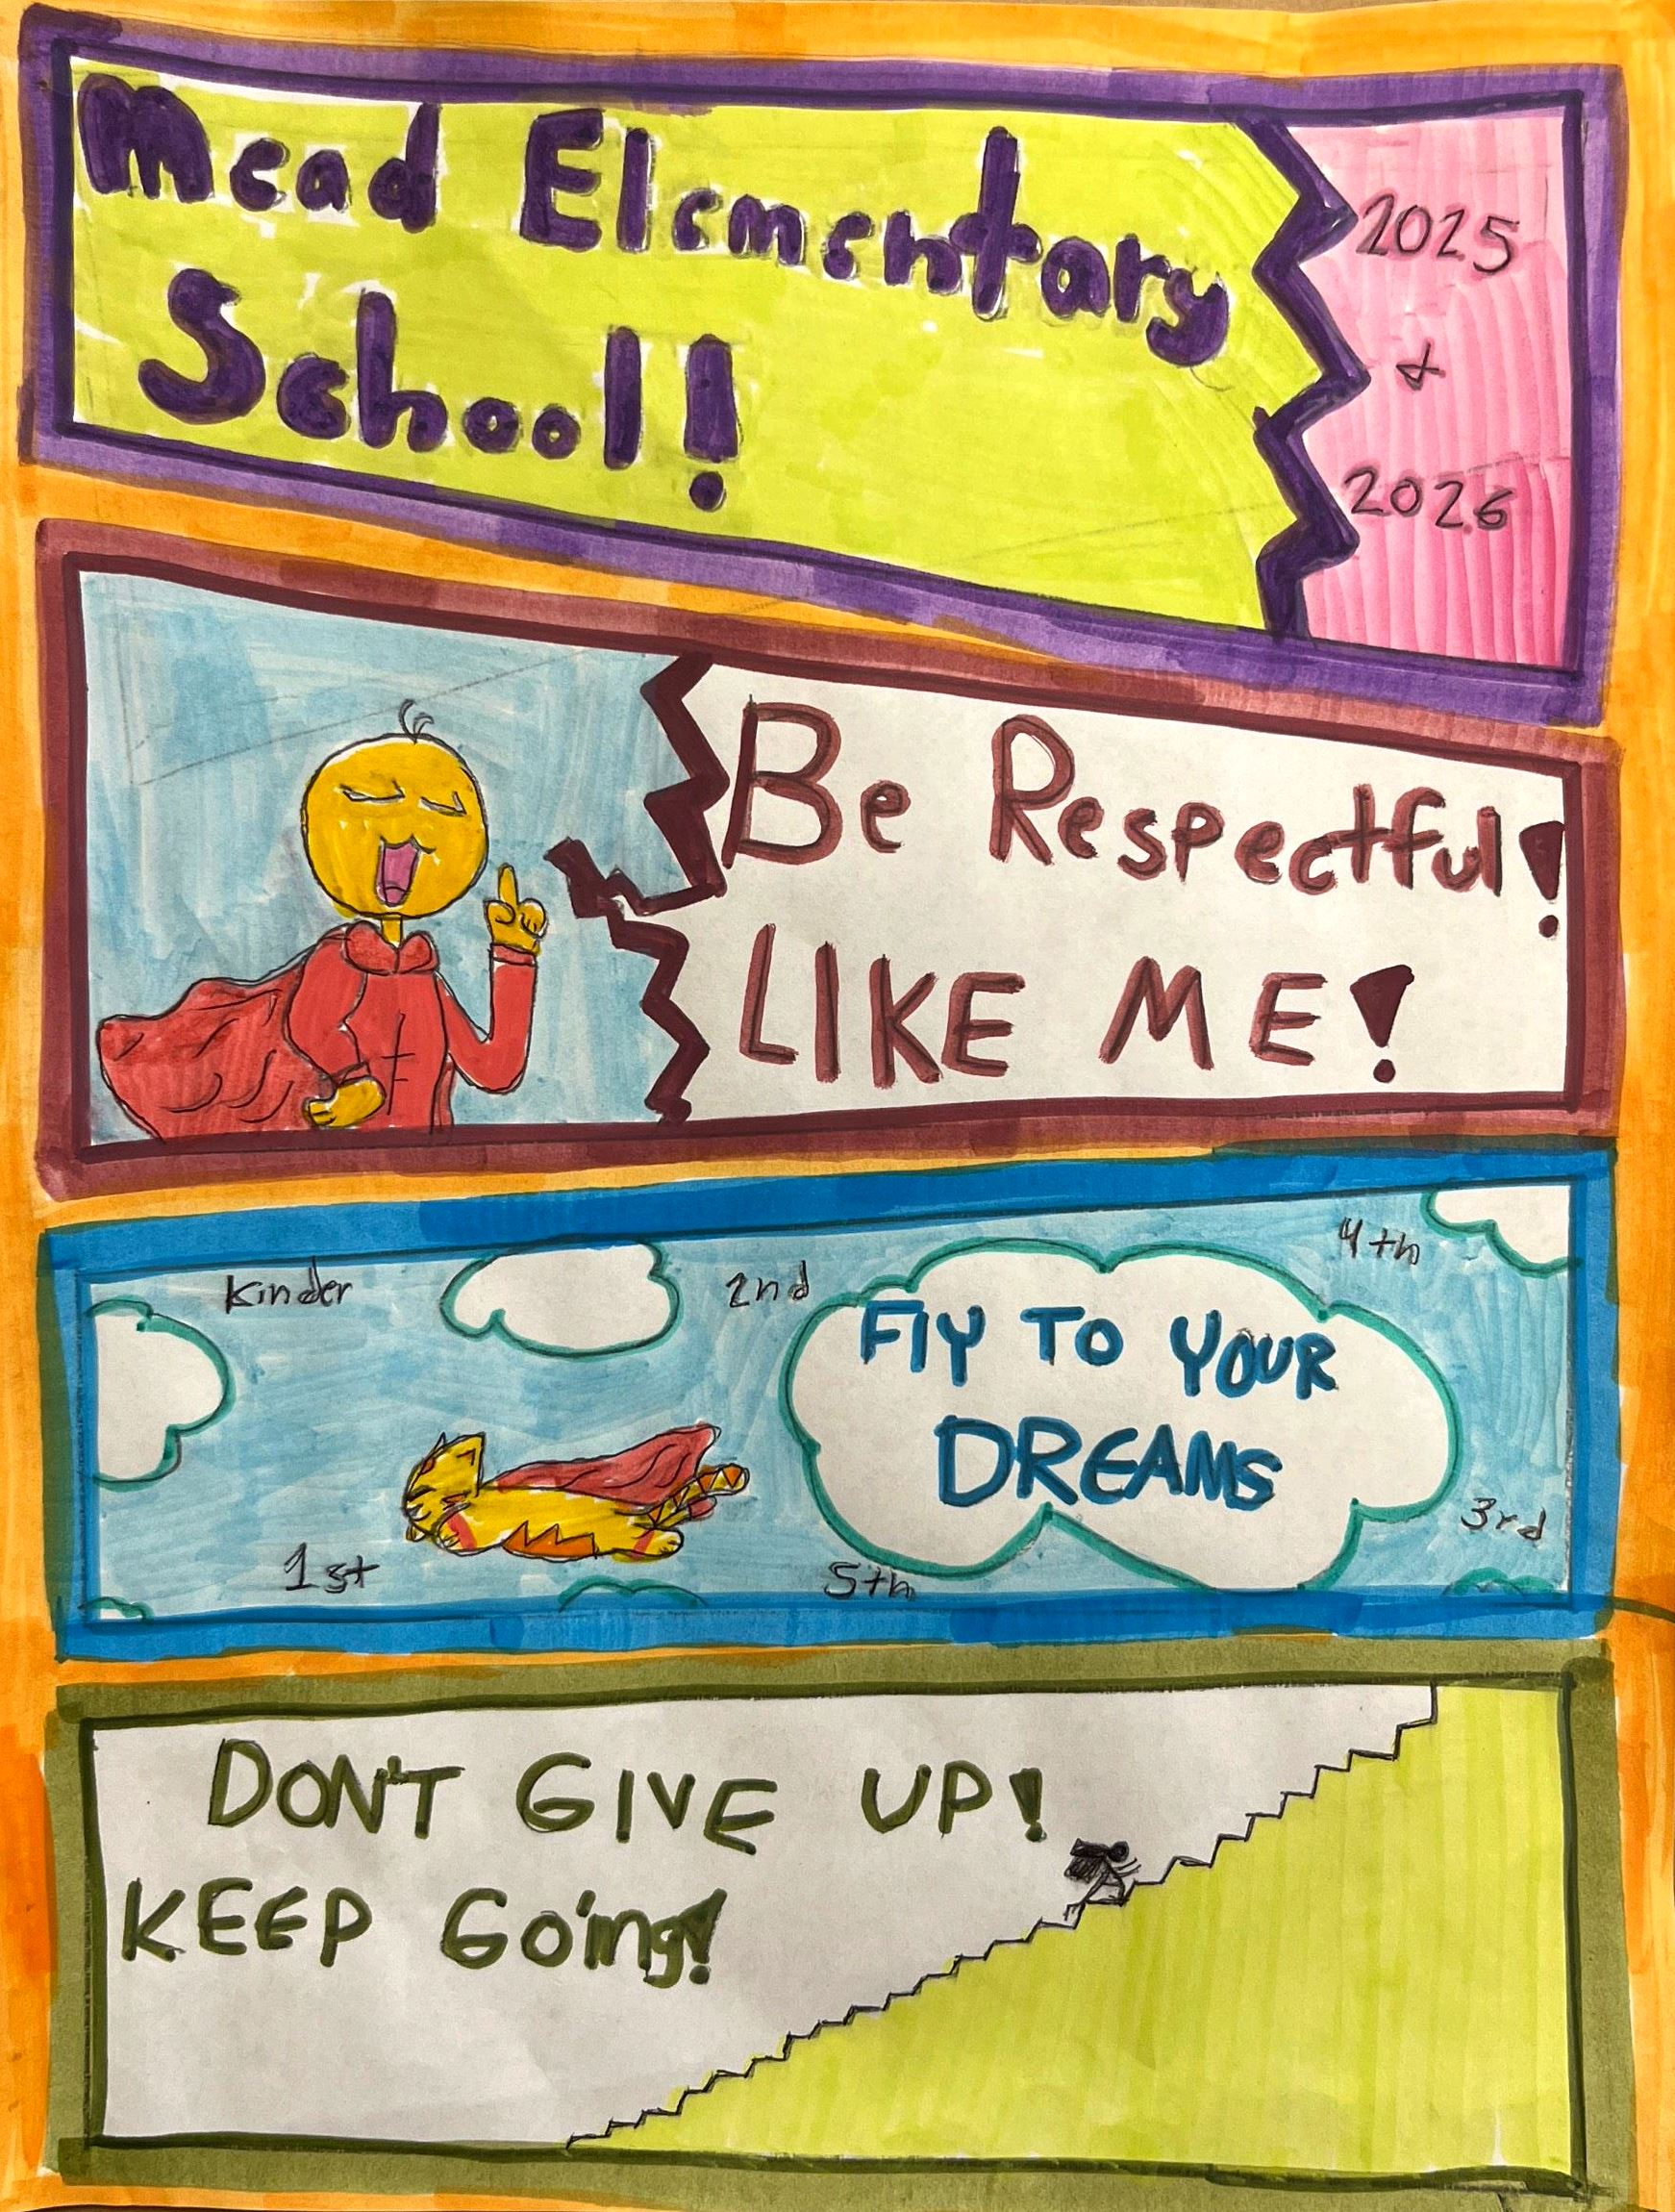 Mead Elementary
School!
2025
&
2026
Be Respectful!
LIKE ME!
Kinder
2nd
4th
FlY TO YOUR
DREAMS
1st
5th
3rd
DON'T GIVE UP!
KEEP Going!